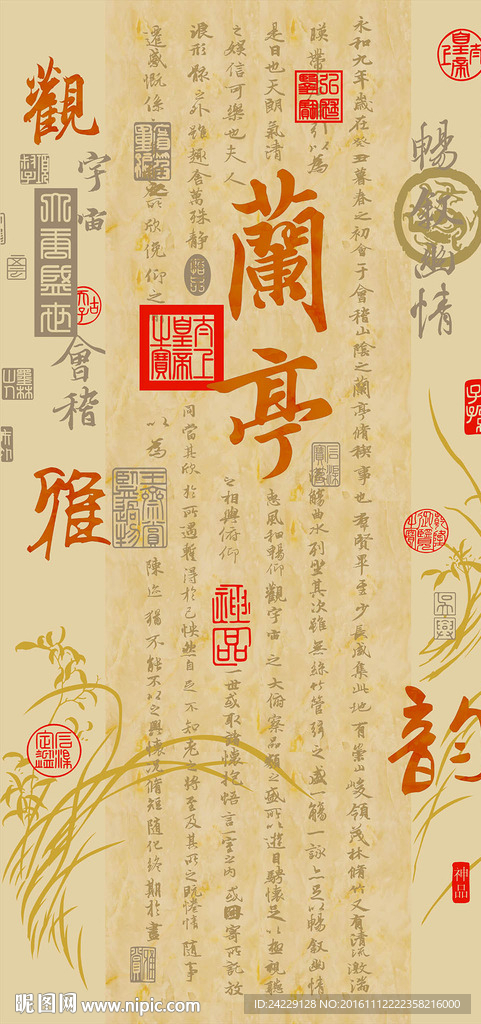 暢叙幽情
韵
神品
永和九年歲在癸丑暮春之初會于會稽山陰之蘭亭脩稧事也群賢畢至少長咸集此地有崇山峻領茂林脩竹又有清流激湍
暎帶
引以為
觴曲水列坐其次雖無絲竹管絃之盛一觴一詠亦足以暢叙幽情
是日也天朗氣清
惠風和暢仰觀宇宙之大俯察品類之盛所以遊目騁懷足以極視聽
之娛信可樂也夫人
之相與俯仰
一世或取諸懷抱悟言一室之內或因寄所託放
浪形骸之外雖趣舍萬殊靜
同當其欣於所遇暫得於己怏然自足不知老之將至及其所之既惓情隨事
遷感慨係
以欣俛仰之
以為
陳迹猶不能不以之興懷況脩短隨化終期於盡
蘭亭
太上皇帝之寶
觀
宇宙
大唐盛世
會稽
雅
昵图网 www.nipic.com
ID:24229128 NO:20161112222358216000